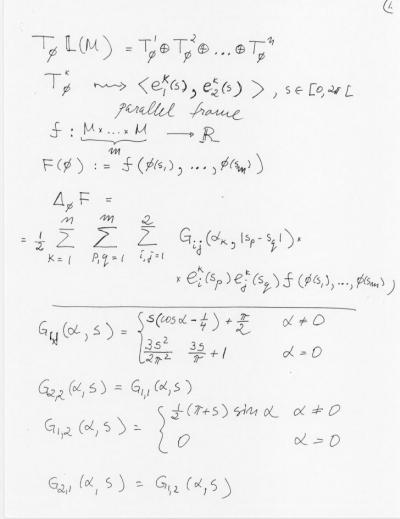 (1
T_ϕ 𝕃(M) = T¹_ϕ ⊕ T²_ϕ ⊕ ... ⊕ Tⁿ_ϕ
T^k_ϕ ⟿ <e₁^k(s), e₂^k(s)>, s ∈ [0, 2π[
parallel frame
f : M × ... × M → ℝ
m
F(ϕ) := f(ϕ(s₁), ..., ϕ(s_m))
Δ_ϕ F =
= 1/2 Σ_{k=1}^{n} Σ_{p,q=1}^{m} Σ_{i,j=1}^{2} G_{ij}(α_k, |s_p - s_q|) ×
× e_i^k(s_p) e_j^k(s_q) f(ϕ(s₁), ..., ϕ(s_m)),
(α, s) = { s(cos α - 1/4) + π/2 α ≠ 0
3s²/2π² 3s/π + 1 α = 0
G_{2,2}(α, s) = G_{1,1}(α, s)
G_{1,2}(α, s) = { 1/2 (π+s) sin α α ≠ 0
0 α = 0
G_{2,1}(α, s) = G_{1,2}(α, s)